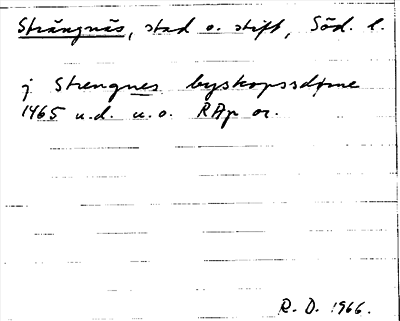 Strängnäs, stad o. stift, Söd. l.
j Strengnes byskopsdøme
1465 u.d. u.o. RAp or.
R. D. 1966.